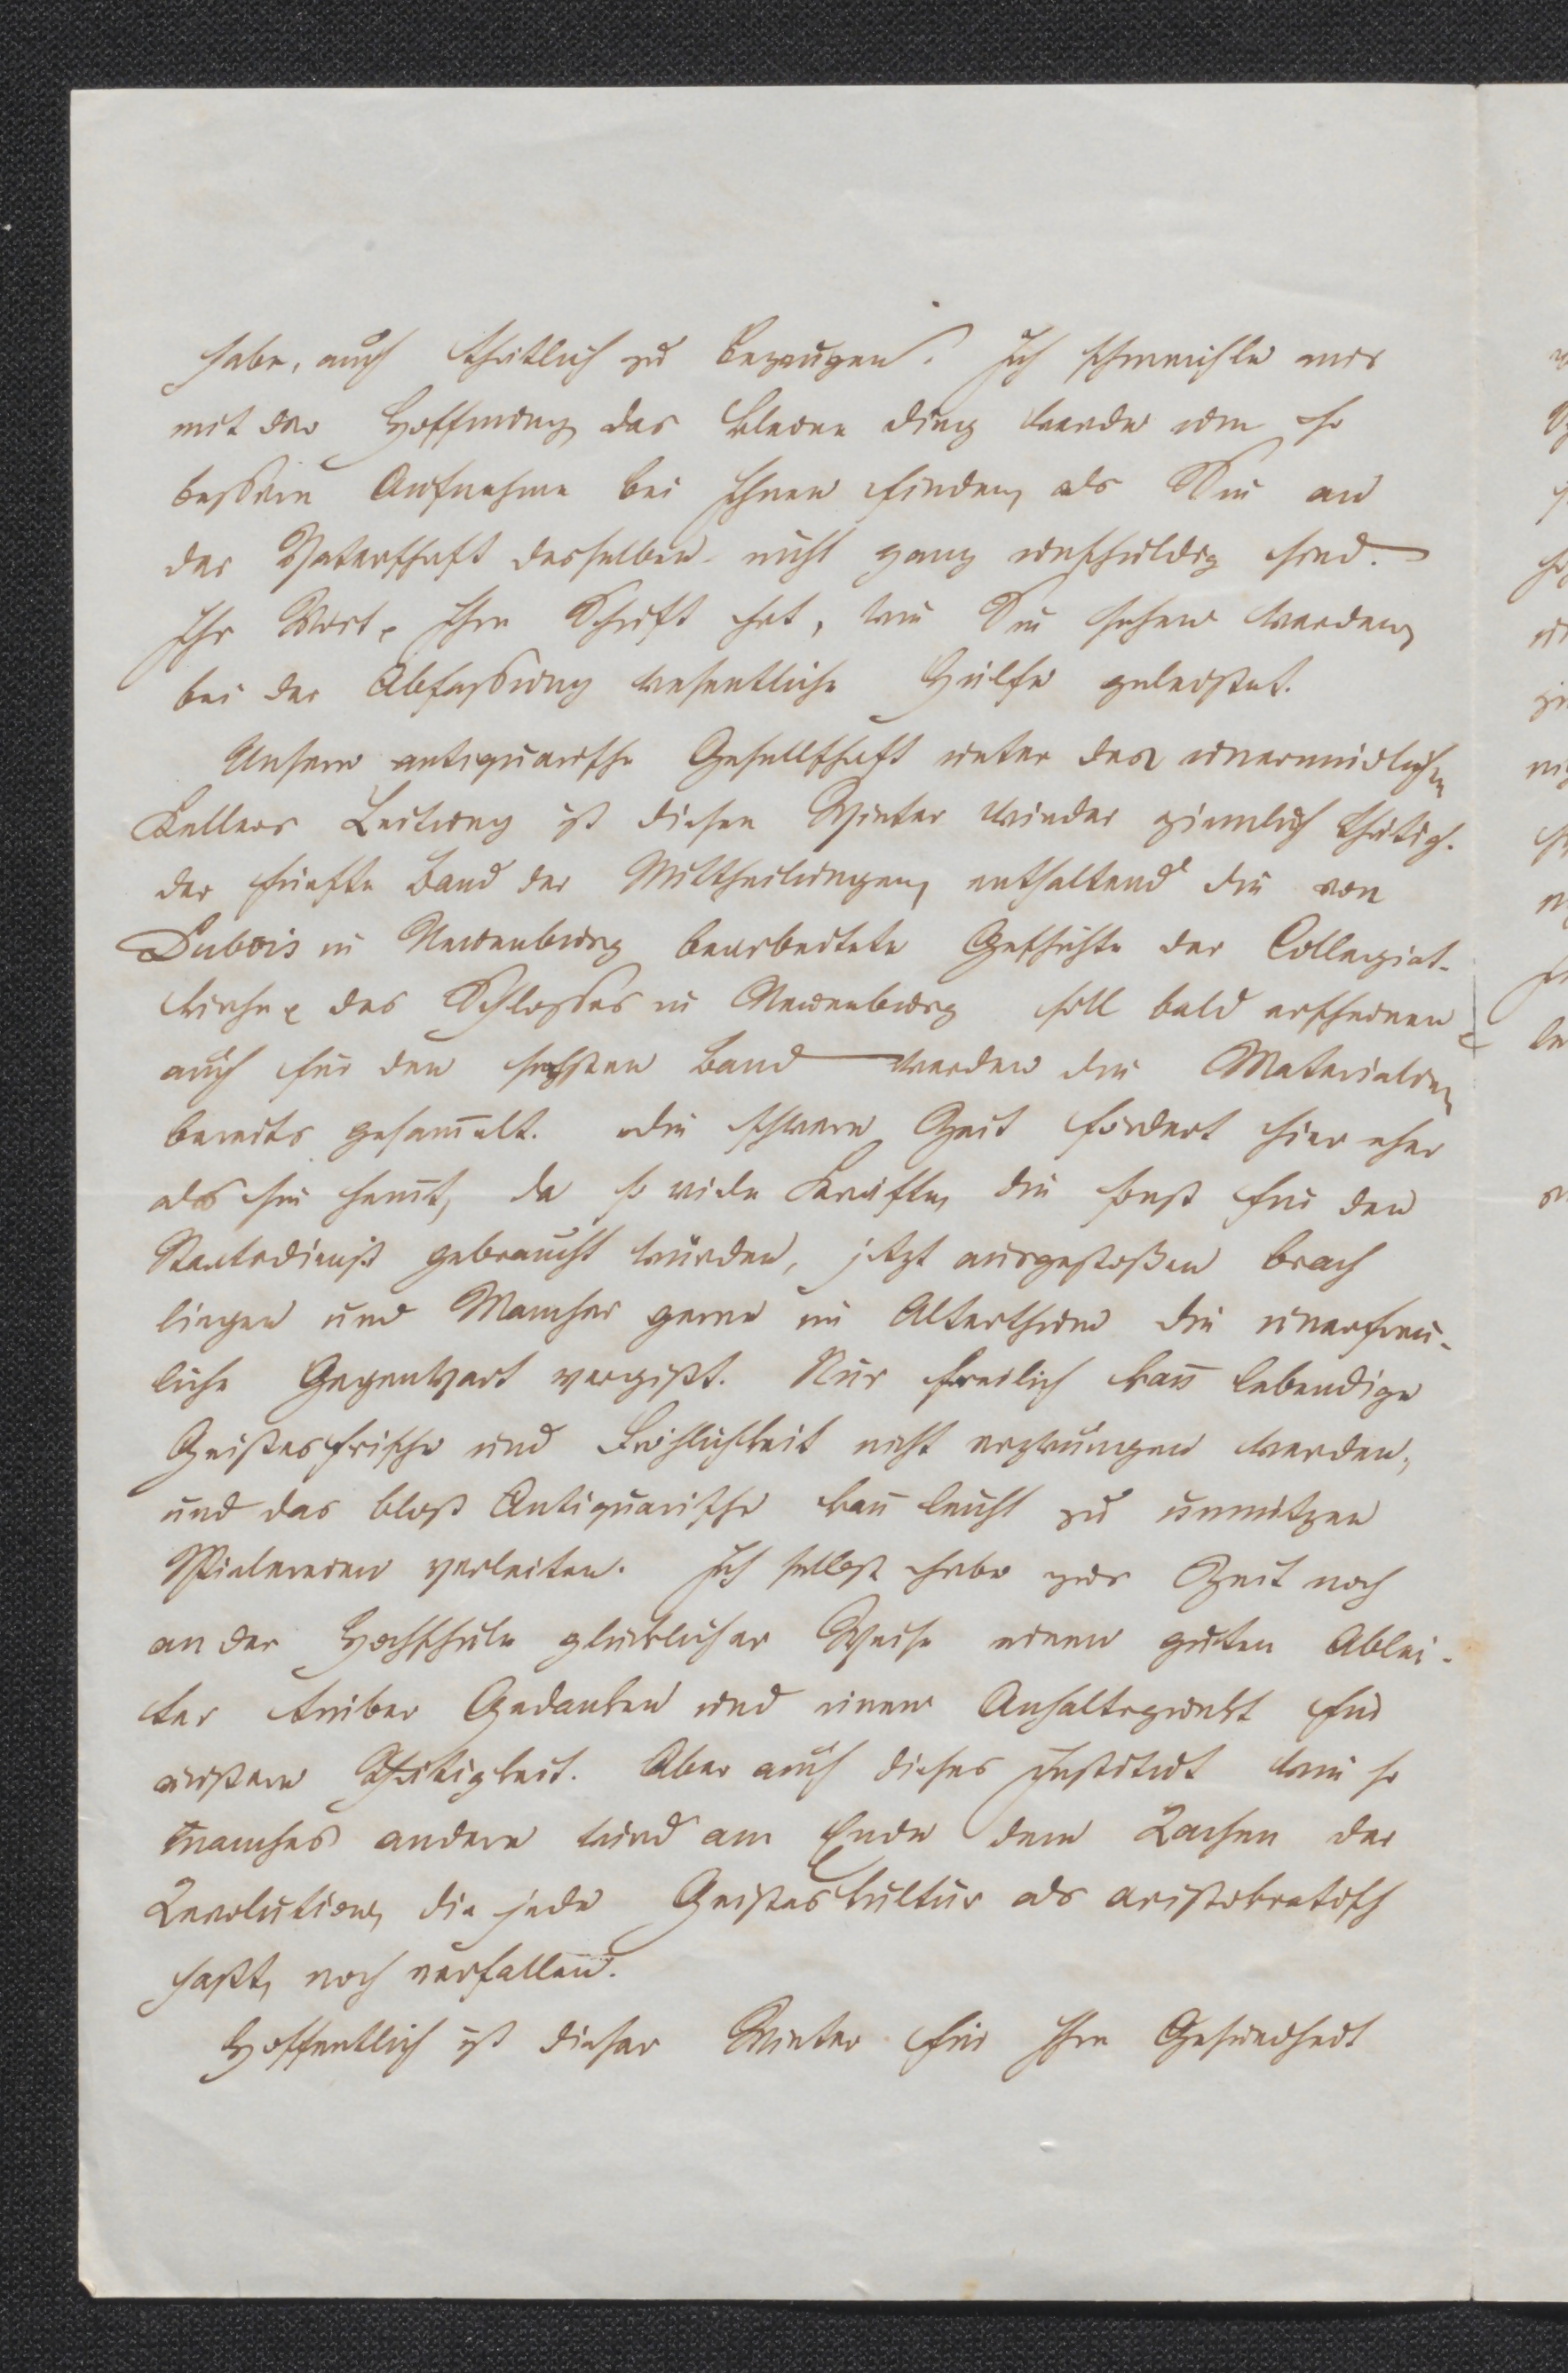 habe, auch thätlich zu bezeugen. Ich schmeichle mir
mit der Hoffnung das kleine Ding werde um so
bessere Aufnahme bei Ihnen finden, als Sie an
der Vaterschaft desselben nicht ganz unschuldig sind.
Ihr Wort, Ihre Schrift hat, wie Sie sehen werden,
bei der Abfassung wesentliche Hülfe geleistet.
Unsere antiquarische Gesellschaft unter des unermüdlichen
Kellers Leitung ist diesen Winter wieder ziemlich thätig.
der fünfte Band der Mittheilungen, enthaltend die von
Dubois in Neuenburg bearbeitete Geschichte der Collegiat-
kirche & des Schlosses in Neuenburg soll bald erscheinen &
auch für den sechsten Band werden die Materialien
bereits gesam̄elt. die schwere Zeit fördert hier eher
als sie hem̄t, da so viele Kräfte, die sonst für den
Staatsdienst gebraucht würden, jetzt ausgestoßen brach
liegen und Mancher gerne im Alterthum die unerfreu-
liche Gegenwart vergißt. Nur freilich kan̄ lebendige
Geistesfrische und Fröhlichkeit nicht erzwungen werden,
und das bloß Antiquarische kan̄ leicht zu unnützen
Spielereien verleiten. Ich selbst habe zur Zeit noch
an der Hochschule glücklicher Weise einen guten Ablei-
ter trüber Gedanken und einen Anhaltspunkt für
äußere Thätigkeit. Aber auch dieses Institut wie so
manches andere wird am Ende dem Rachen der
Revolution, die jede Geisteskultur als aristokratisch
haßt, noch verfallen.
Hoffentlich ist dieser Winter für Ihre Gesundheit